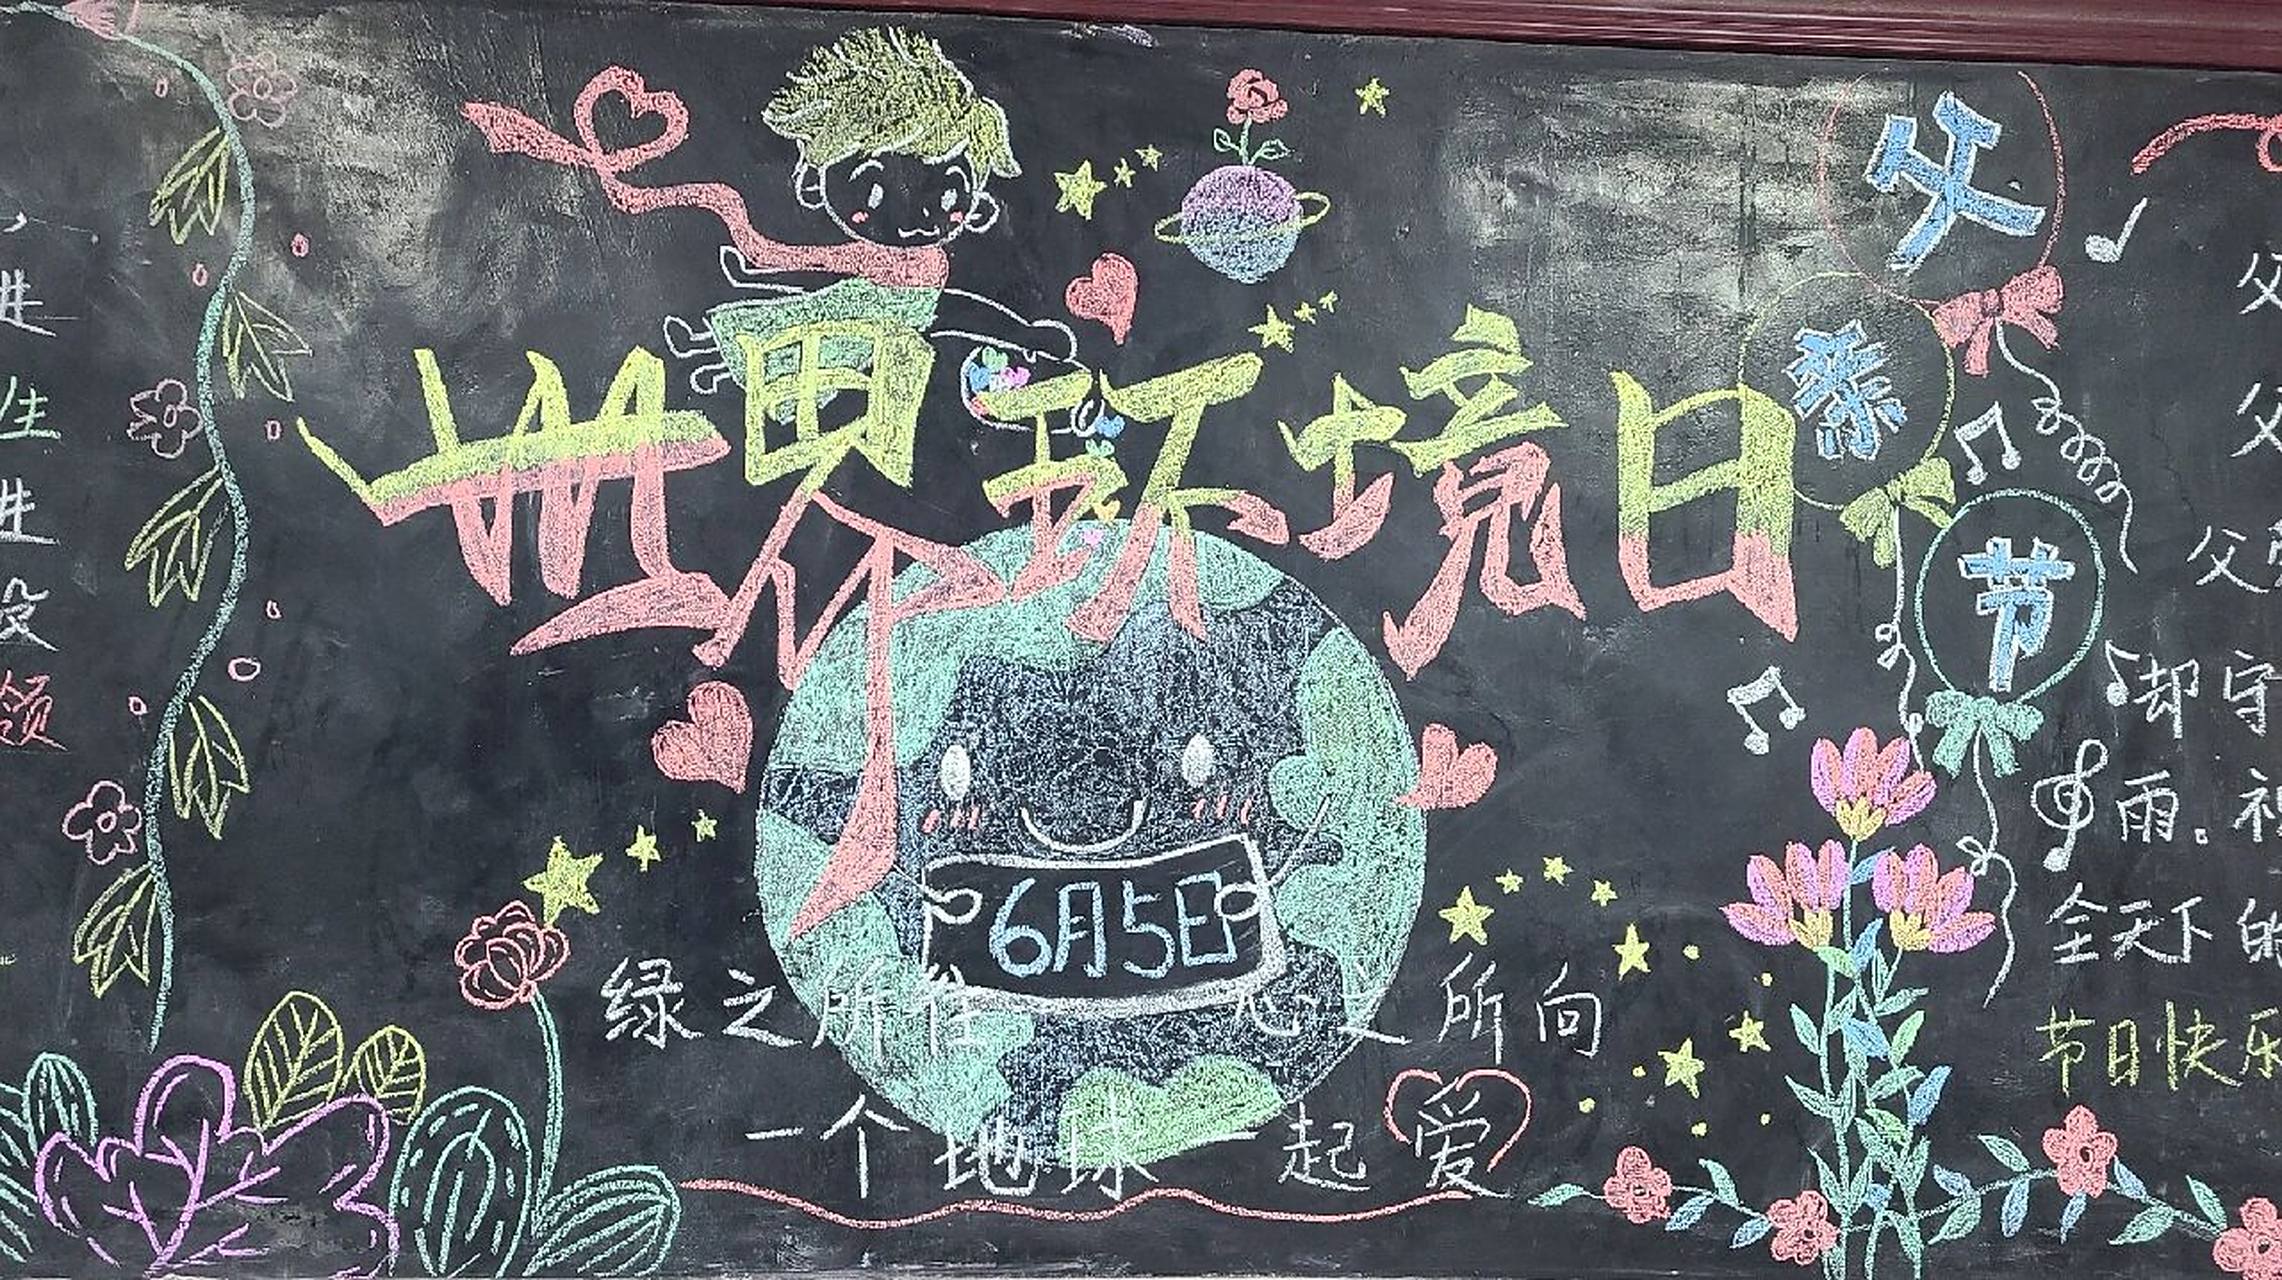 世界环境日
6月5日
绿之所往 心之所向
一个地球 一起爱
父
亲
节
进
生
进
没
领
父
父
父亲
却守
雨。祝
全天下的
节日快乐